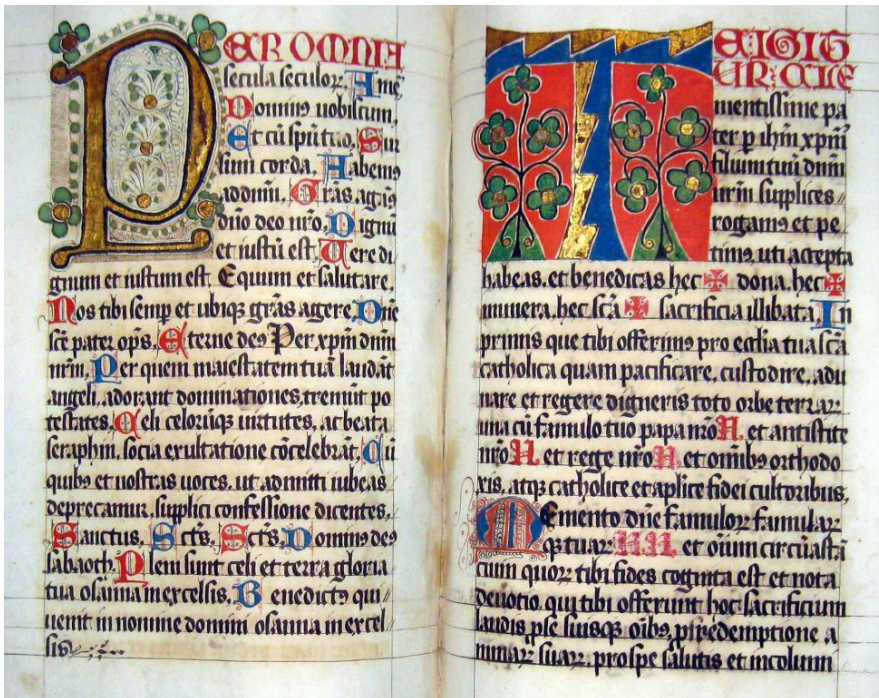 PER OMNIA
secula seculoꝝ. Amē.
Dominꝰ uobiscum.
Et cū spū tuo. Sur
sum corda. Habemꝰ
ad dnm̄. Grās agamꝰ
dn̄o deo nr̄o. Dignū
et iustū est. Uere di
gnum et iustum est. Equum et salutare.
Nos tibi semp̄ et ubiqꝫ grās agere. Dn̄e
sc̄e pater op̄s. Eterne deꝰ Per xp̄m dnm̄
nr̄m. Per quem maiestatem tuā laudāt
angeli. adorant dominationes. tremūt po
testates. Celi celorūqꝫ uirtutes. ac beata
seraphin. socia exultatione cōcelebrāt. Cū
quibꝰ et nostras uoces. ut admitti iubeas
deprecamur. supplici confessione dicentes.
Sanctus. Sctꝰs. Sctꝰs. Dominꝰ deꝰ
sabaoth. Pleni sunt celi et terra gloria
tua osanna in excelsis. Benedictꝰ qui
uenit in nomine domini osanna in excel
sis.
TE IGIT
UR. CLE
mentissime pa
ter p ih̄m xp̄m
filium tuū dnm̄
nr̄m supplices
rogamꝰ et pe
timꝰ. uti accepta
habeas. et benedicas hec ✠ dona. hec ✠
munera. hec sc̄ā ✠ sacrificia illibata. In
primis que tibi offerimꝰ pro ecc̄lia tua sc̄ā
catholica quam pacificare. custodire. adu
nare et regere digneris toto orbe terraꝝ
una cū famulo tuo papa nr̄o N. et antistite
nr̄o N. et rege nr̄o N. et omībꝰ orthodo
xis. atqꝫ catholice et aplice fidei cultoribus.
Memento dn̄e famuloꝝ famulaꝝ
qꝫ tuaꝝ N.N. et oīum circūastā
cium quoꝝ tibi fides cognita est et nota
deuotio. qui tibi offerunt hoc sacrificium
laudis p̱ se suisqꝫ oībꝰ. p̱ redemptione a
nimaꝝ suaꝝ. pro spe salutis et incolumi